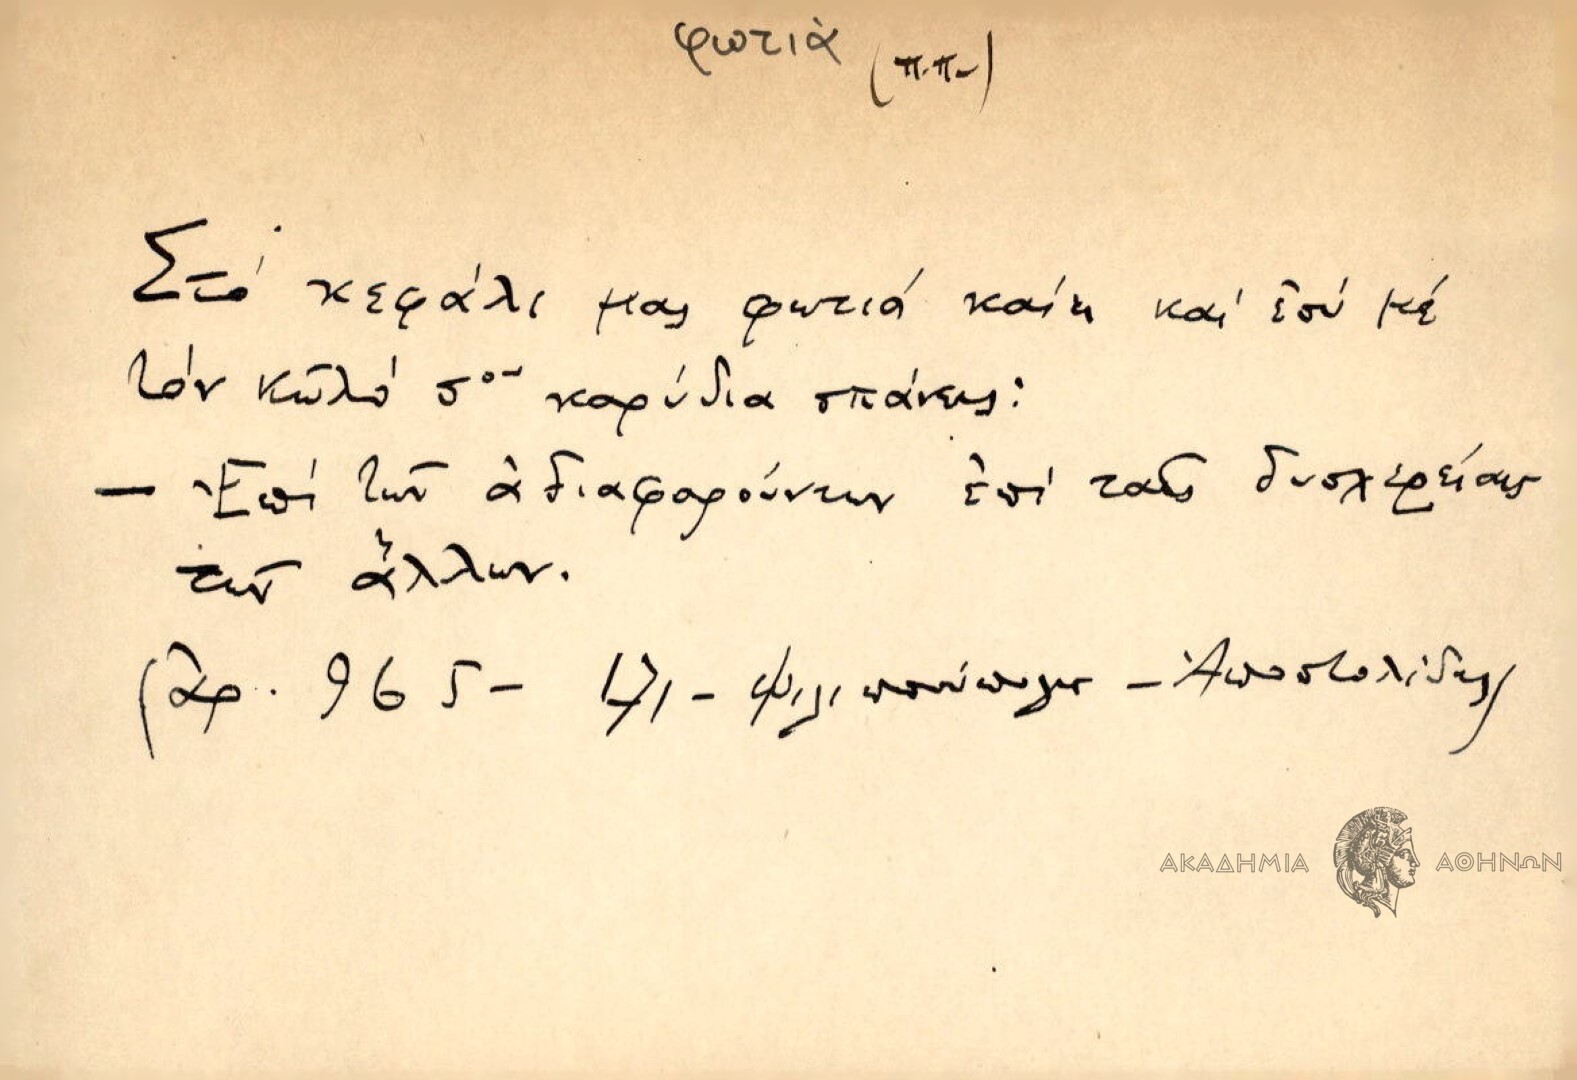 φωτιὰ (π.π.)
Στό κεφάλι μας φωτιά καίει καί ἐσύ μέ
τόν κῶλό σου καρύδια σπάνεις:
— Ἐπί τῶν ἀδιαφορούντων ἐπί ταῖς δυσχερείαις
τῶν ἄλλων.
(ἀρ. 965 – – Φιλιππούπολις – Ἀποστολίδης)
ΑΚΑΔΗΜΙΑ ΑΘΗΝΩΝ